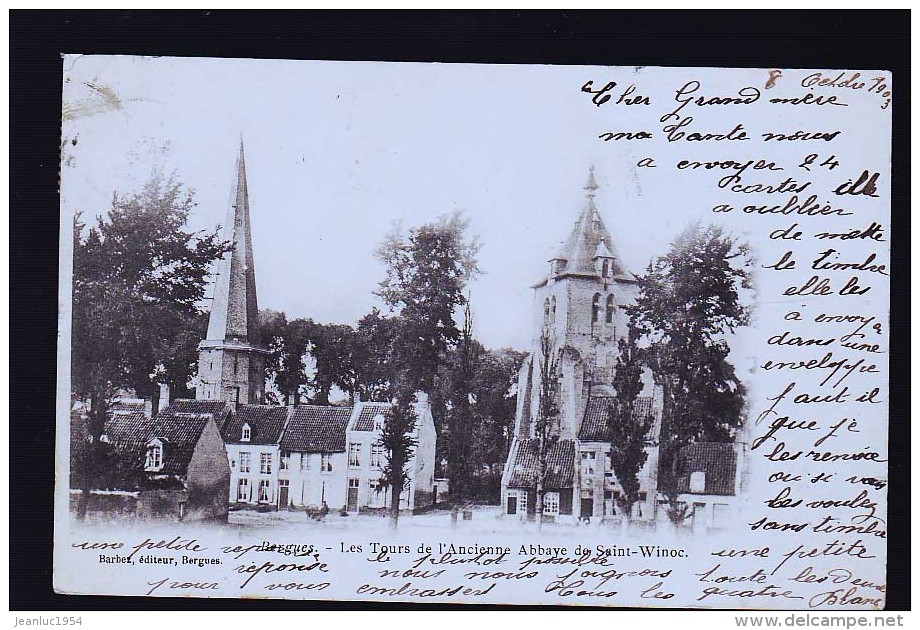 8 Octobre 1903
Cher Grand mère
ma Tante nous
a envoyer 24
cartes ille
a oublier
de mettre
le timbre
elle les
à envoyé
dans une
enveloppe
faut il
que je
les renvoie
ou si vous
les voulez
sans timbre
une petite
Bergues. - Les Tours de l'Ancienne Abbaye de Saint-Winoc.
Barbez, éditeur, Bergues.
une petite
réponse le plutôt possible
nous nous joignons toute les deux
pour vous embrasser tous les quatre
Blanc
jeanluc1954
www.delcampe.net